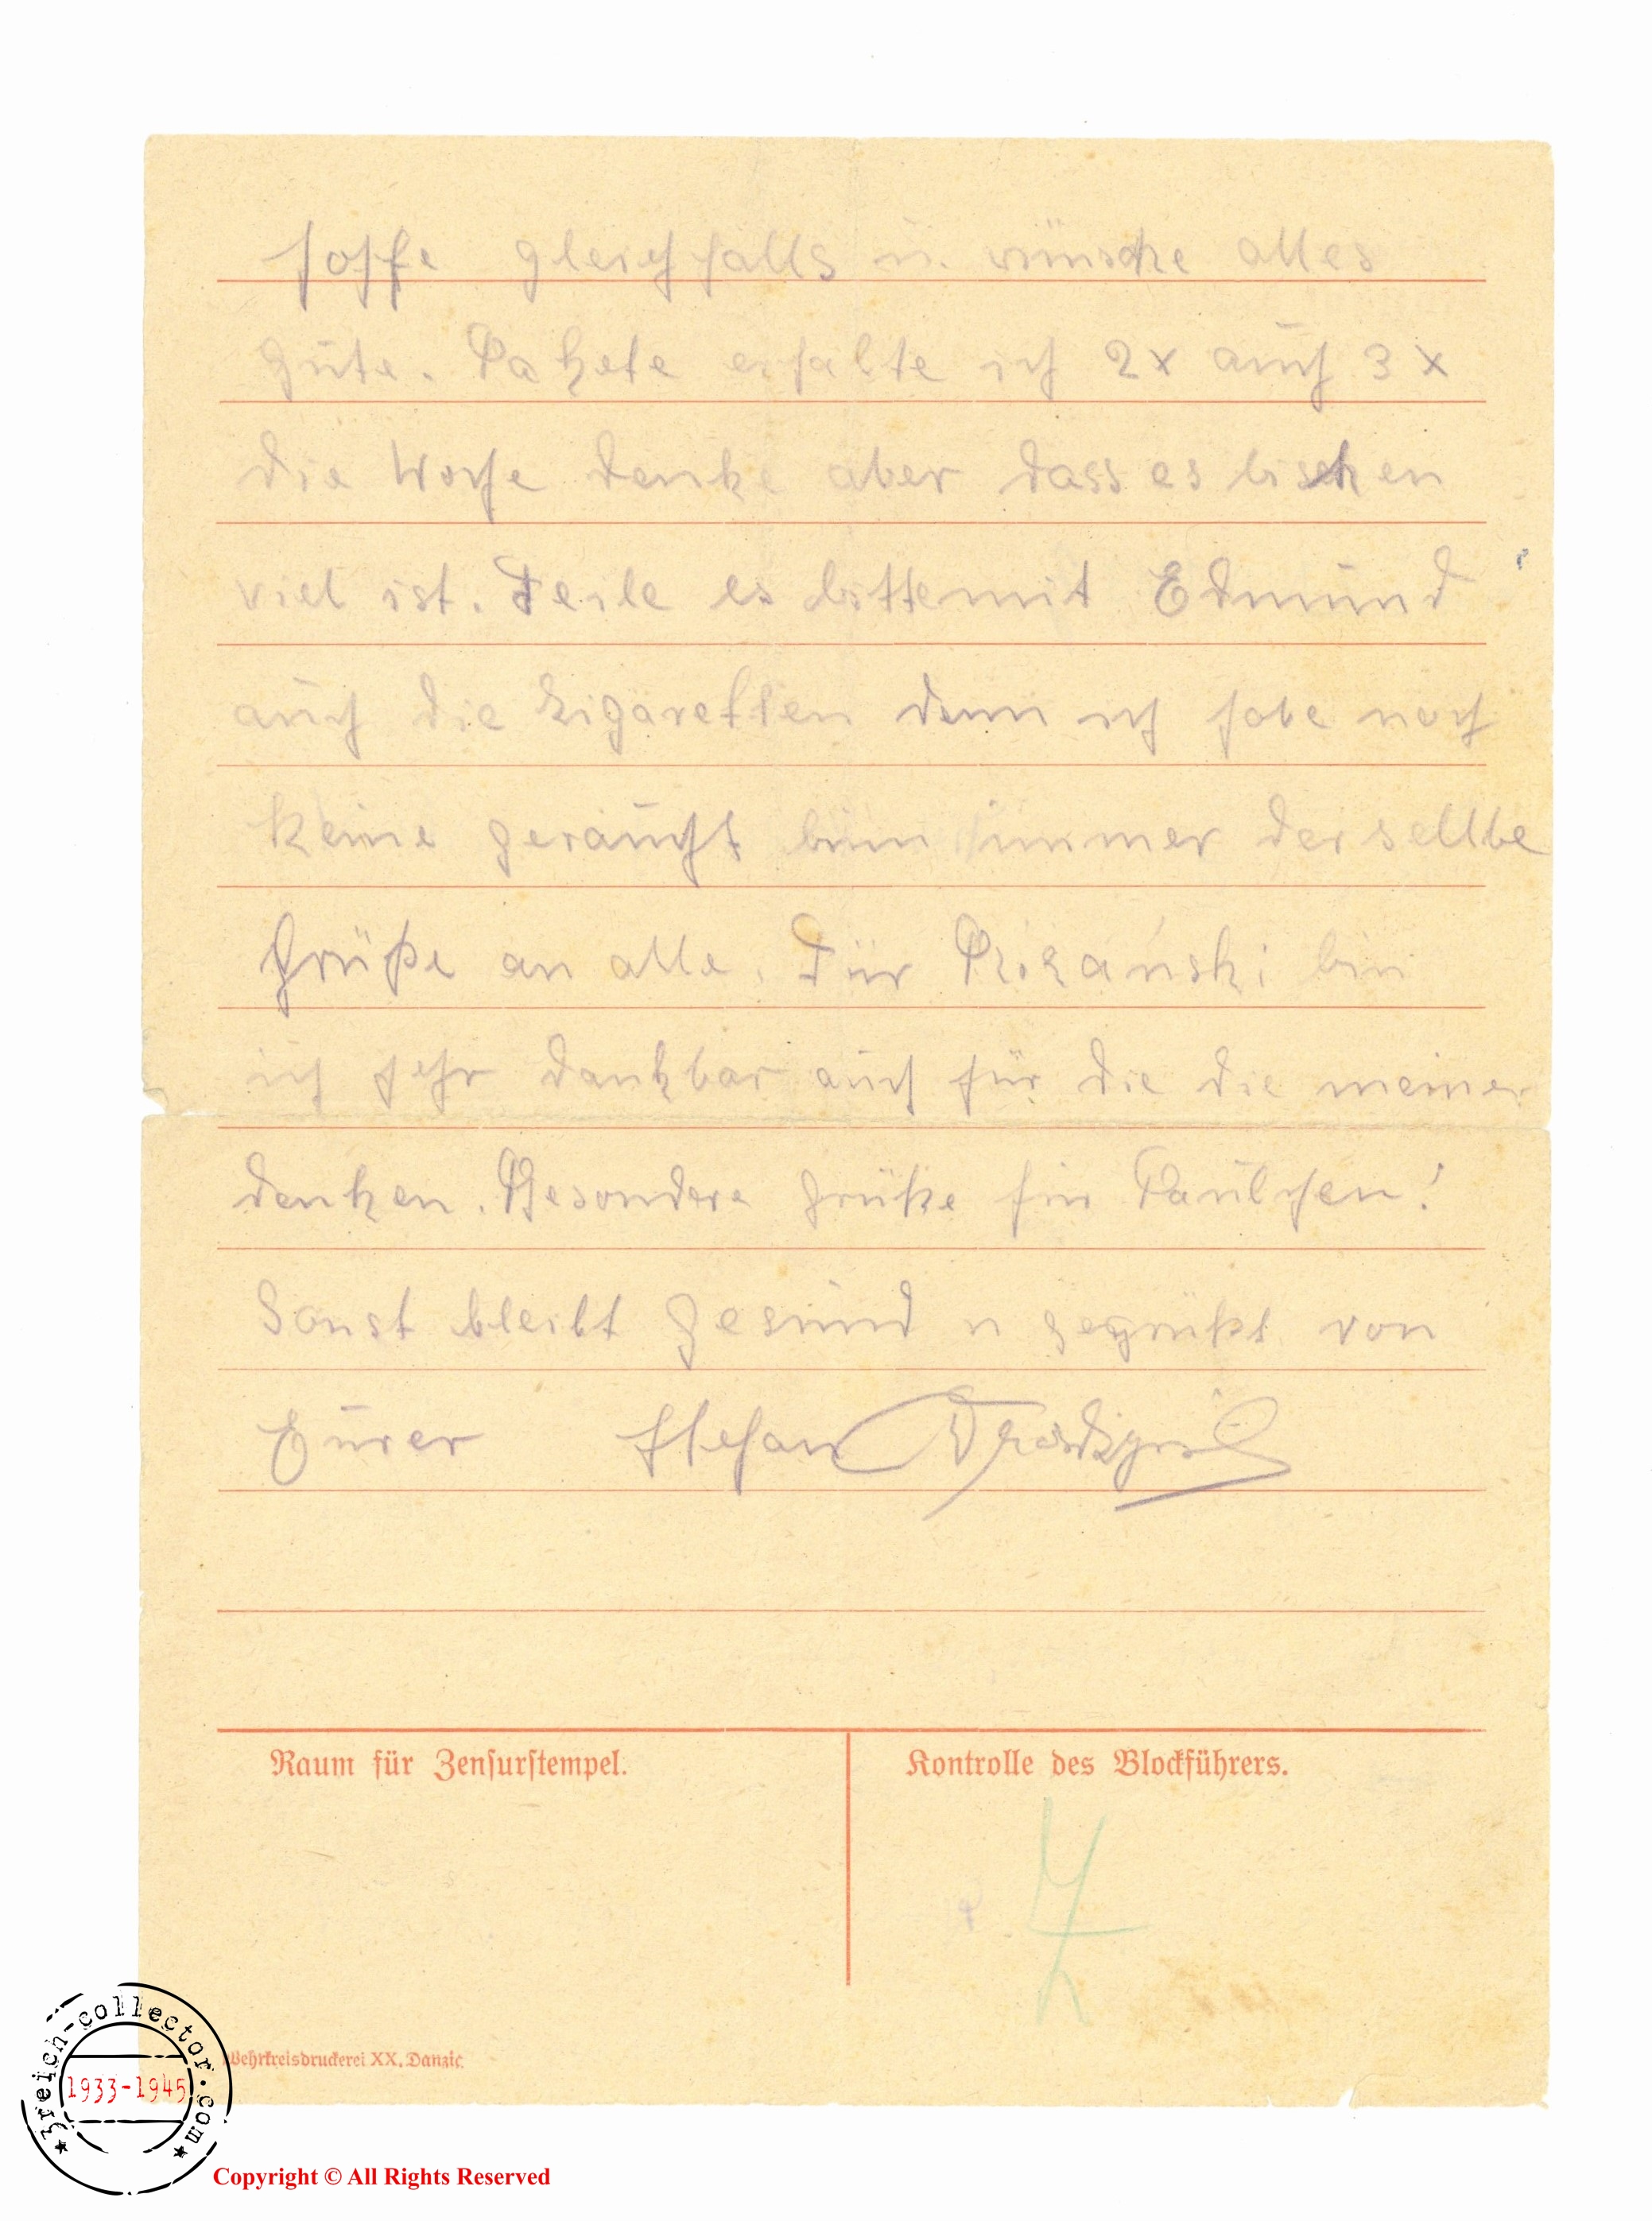 hoffe gleichfalls u. wünsche alles
gute. Pakete erhalte ich 2x auch 3x
die Woche denke aber dass es bischen
viel ist. Teile es bitte mit Edmund
auch die Zigaretten denn ich habe noch
keine geraucht binn immer derselbe
Grüße an alle. Für bin
ich sehr dankbar auch für die die meiner
denken. Besondere grüße für Paulchen!
Sonst bleibt gesund u gegrüßt von
Eurer Stefan
Raum für Zensurstempel.
Kontrolle des Blockführers.
Wehrkreisdruckerei XX, Danzig.
3reich-collector.com
1933-1945
Copyright © All Rights Reserved